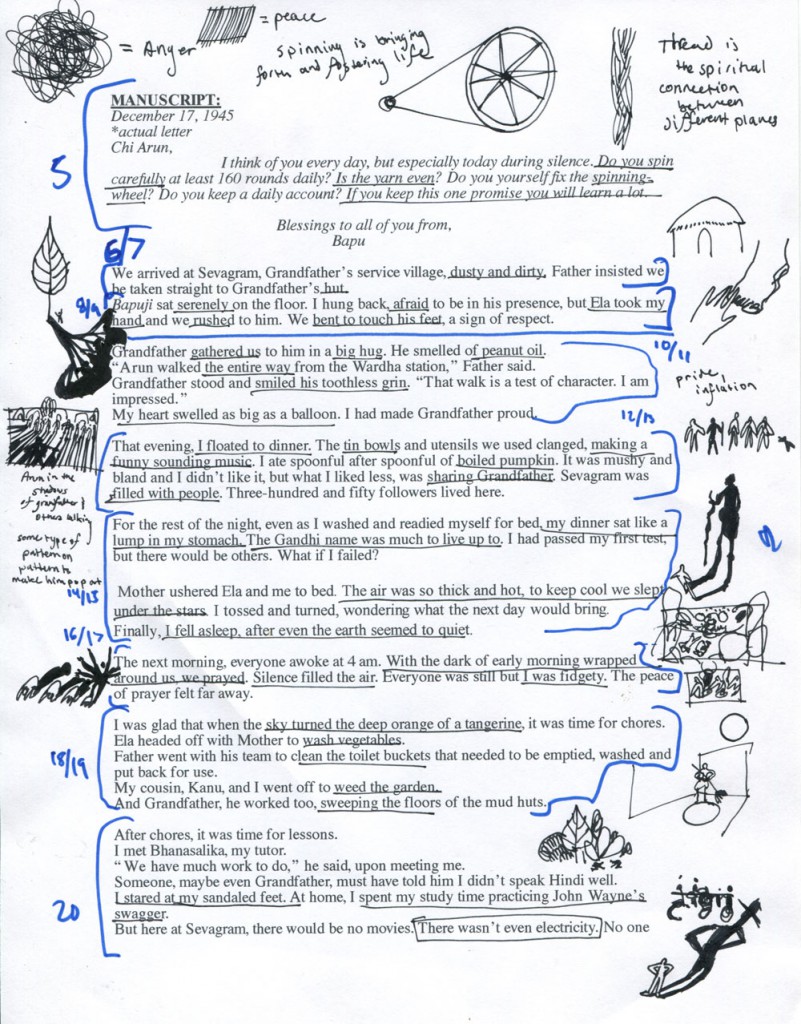 = Anger
= peace
spinning is bringing
forth and fostering life
Thread is
the spiritual
connection
between
different planes
MANUSCRIPT:
December 17, 1945
*actual letter
Chi Arun,
I think of you every day, but especially today during silence. Do you spin
carefully at least 160 rounds daily? Is the yarn even? Do you yourself fix the spinning-
wheel? Do you keep a daily account? If you keep this one promise you will learn a lot.
5
Blessings to all of you from,
Bapu
6/7
We arrived at Sevagram, Grandfather's service village, dusty and dirty. Father insisted we
be taken straight to Grandfather's hut.
8/9
Bapuji sat serenely on the floor. I hung back, afraid to be in his presence, but Ela took my
hand and we rushed to him. We bent to touch his feet, a sign of respect.
10/11
Grandfather gathered us to him in a big hug. He smelled of peanut oil.
"Arun walked the entire way from the Wardha station," Father said.
Grandfather stood and smiled his toothless grin. "That walk is a test of character. I am
impressed."
My heart swelled as big as a balloon. I had made Grandfather proud.
pride,
inflation
12/13
That evening, I floated to dinner. The tin bowls and utensils we used clanged, making a
funny sounding music. I ate spoonful after spoonful of boiled pumpkin. It was mushy and
bland and I didn't like it, but what I liked less, was sharing Grandfather. Sevagram was
filled with people. Three-hundred and fifty followers lived here.
Arun in the
shadows
of grandfather &
others talking
some type of
pattern on
pattern to
make him pop out
14/15
For the rest of the night, even as I washed and readied myself for bed, my dinner sat like a
lump in my stomach. The Gandhi name was much to live up to. I had passed my first test,
but there would be others. What if I failed?
Mother ushered Ela and me to bed. The air was so thick and hot, to keep cool we slept
under the stars. I tossed and turned, wondering what the next day would bring.
Finally, I fell asleep, after even the earth seemed to quiet.
16/17
The next morning, everyone awoke at 4 am. With the dark of early morning wrapped
around us, we prayed. Silence filled the air. Everyone was still but I was fidgety. The peace
of prayer felt far away.
18/19
I was glad that when the sky turned the deep orange of a tangerine, it was time for chores.
Ela headed off with Mother to wash vegetables.
Father went with his team to clean the toilet buckets that needed to be emptied, washed and
put back for use.
My cousin, Kanu, and I went off to weed the garden.
And Grandfather, he worked too, sweeping the floors of the mud huts.
20
After chores, it was time for lessons.
I met Bhanasalika, my tutor.
" We have much work to do," he said, upon meeting me.
Someone, maybe even Grandfather, must have told him I didn't speak Hindi well.
I stared at my sandaled feet. At home, I spent my study time practicing John Wayne's
swagger.
But here at Sevagram, there would be no movies. There wasn't even electricity. No one